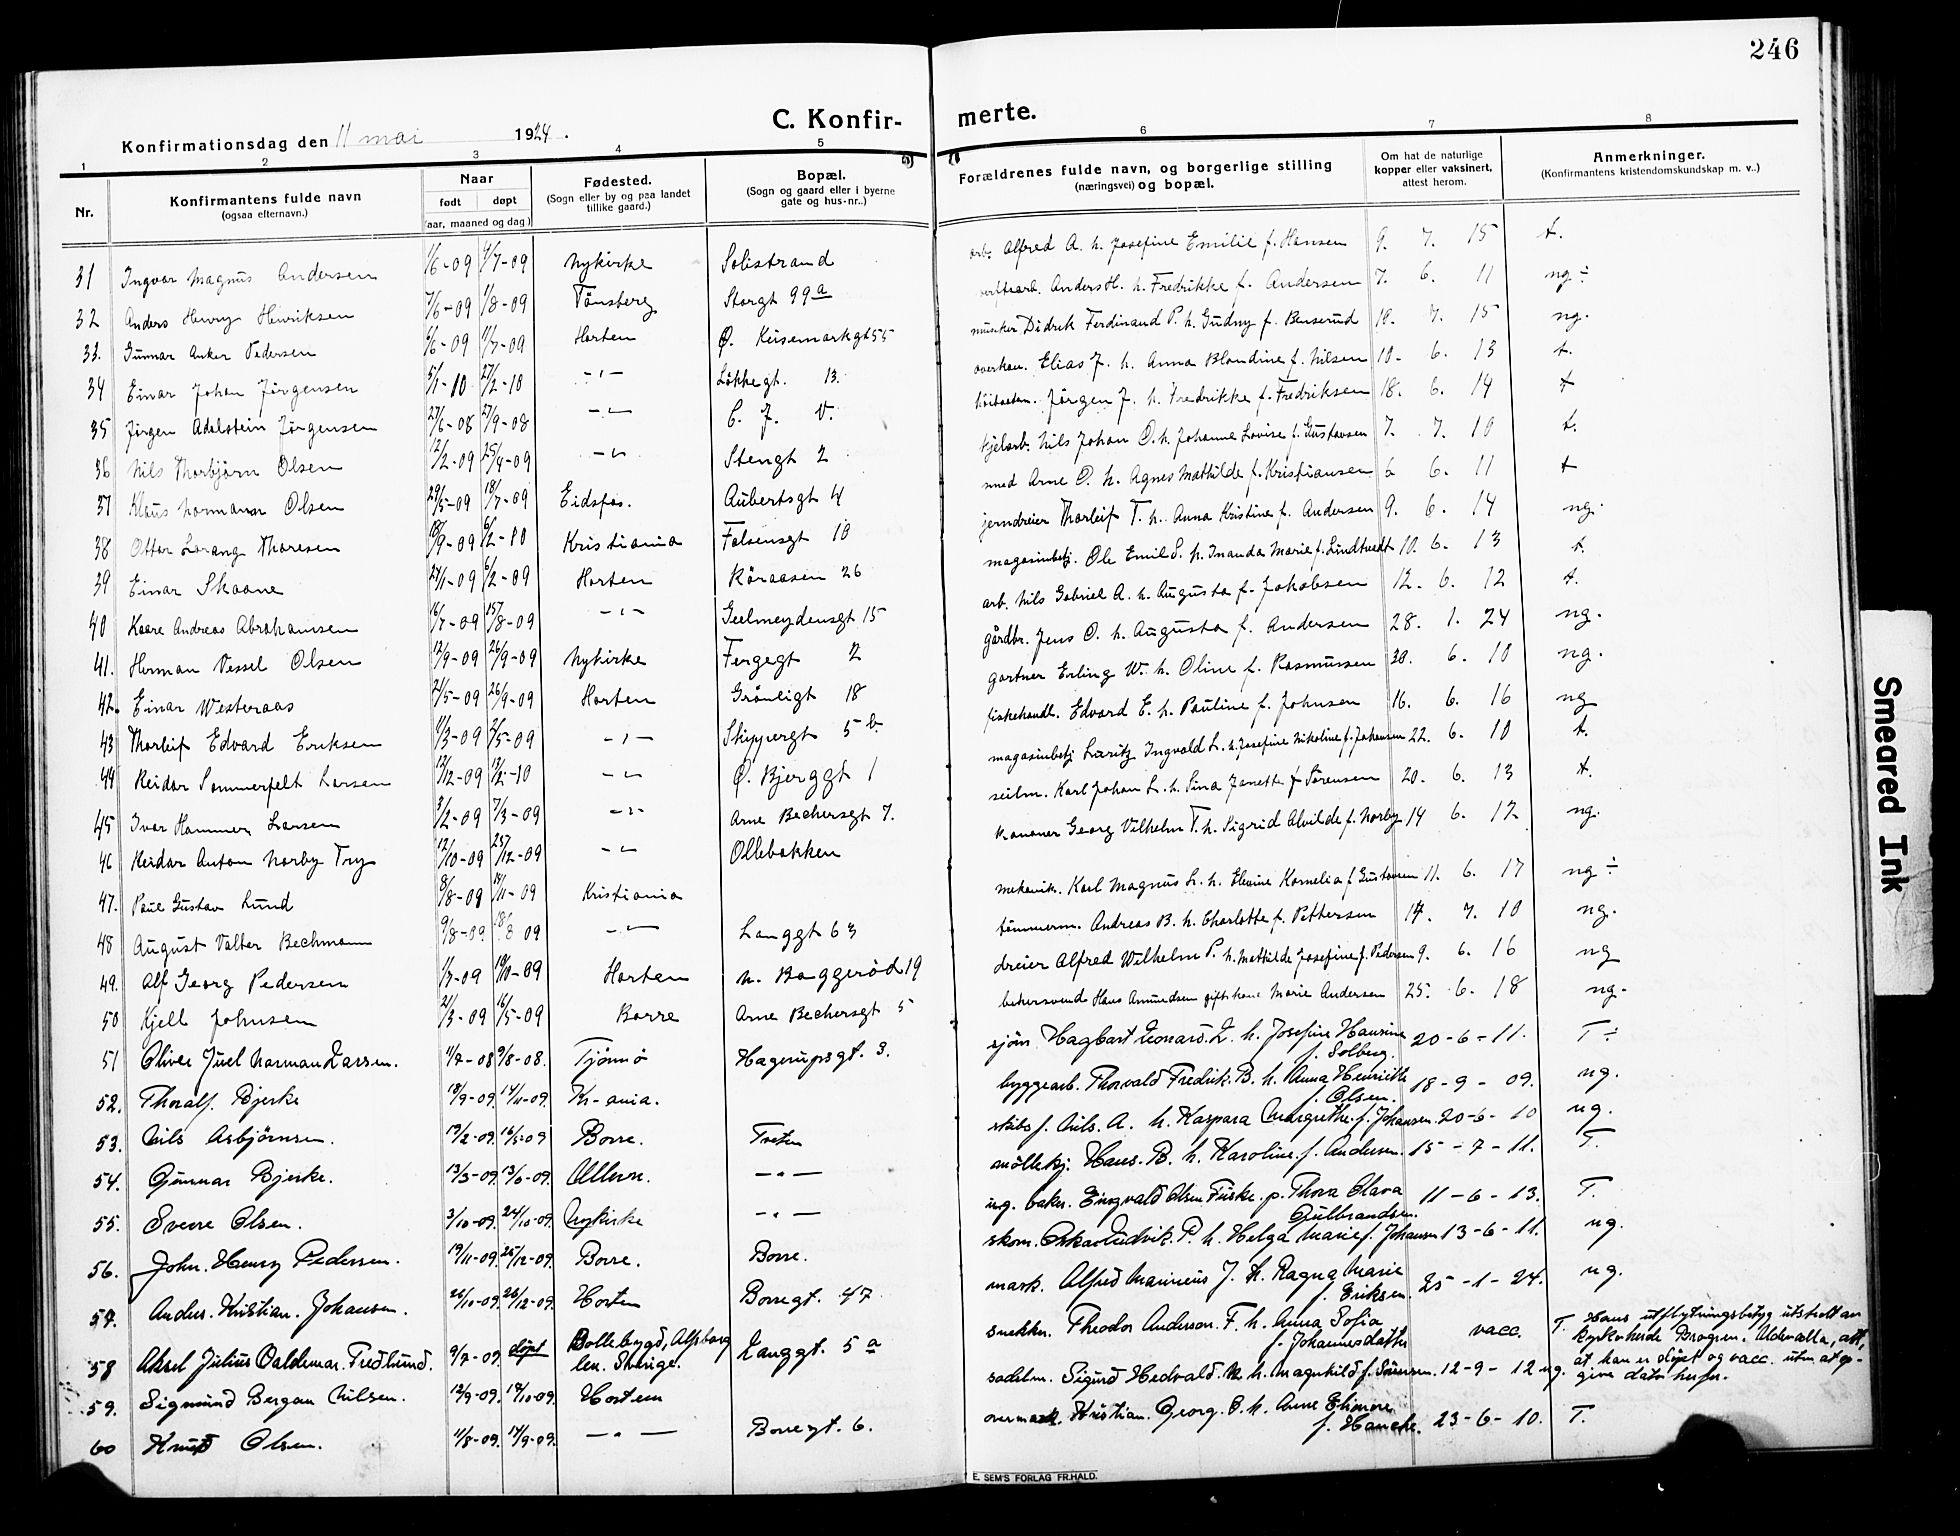 246
C. Konfir-
merte.
Konfirmationsdag den 11 mai 1924.
1 2 3 4 5 6 7 8
Nr.
Konfirmantens fulde navn
(ogsaa efternavn.)
Naar
født døpt
(aar, maaned og dag)
Fødested.
(Sogn eller by og paa landet
tillike gaard.)
Bopæl.
(Sogn og gaard eller i byerne
gate og hus-nr..)
Forældrenes fulde navn, og borgerlige stilling
(næringsvei) og bopæl.
Om hat de naturlige
kopper eller vaksinert,
attest herom.
Anmerkninger.
(Konfirmantens kristendomskundskap m. v..)
31 Ingvar Magnus Andersen 1/6-09 4/7-09 Nykirke Solistrand arb. Alfred A. h. Josefine Emilie f. Hansen 9. 7. 15 t.
32 Anders Henry Henriksen 7/6-09 1/8-09 Tønsberg Storgt 99a Anders H. h. Fredrikke f. Andersen 7. 6. 11 ng ÷
33. Gunnar Anker Pedersen 6/6-09 11/7-09 Horten Ø. Keisemarkgt 55 musiker Didrik Ferdinand P. h. Gudny f. Benserud 18. 7. 15 ng.
34 Einar Johan Jørgensen 5/1-10 27/2-10 -"- Løkkegt. 13. Elias J. h. Anna Blandine f. Nilsen 10. 6. 13 t.
35 Jørgen Adelstein Jørgensen 27/6-08 27/9-08 -"- C. J. V. Jørgen J. h. Fredrikke f. Fredriksen 18. 6. 14 t
36 Nils Thorbjørn Olsen 12/2-09 25/4-09 -"- Stengt 2 kjelarb. Nils Johan O. h. Johanne Lovise f. Gustavsen 7. 7. 10 t.
37 Klaus Normann Olsen 29/5-09 18/7-09 Eidsfos. Aubertsgt 4 smed Arne O. h. Agnes Mathilde f. Kristiansen 6 6. 11 t
38 Ottar Lorang Thoresen 18/9-09 6/2-10 Kristiania Falsensgt 10 jerndreier Thorleif T. h. Anna Kristine f. Andersen 9. 6. 14 ng.
39 Einar Skaane 24/1-09 6/2-09 Horten Røraasen 26 magasinbetj. Ole Emil S. h. Inanda Marie f. Lindtvedt 10. 6. 13 t.
40 Kaare Andreas Abrahamsen 16/7-09 15/8-09 -"- Geelmeydensgt 15 arb. Nils Gabriel A. h. Augusta f. Jakobsen 12. 6. 12 t.
41. Herman Vessel Olsen 12/9-09 26/9-09 Nykirke Fergegt 2 gårdbr. Jens O. h. Augusta f. Andersen 28. 1. 24 ng.
42. Einar Westeraas 21/5-09 26/9-09 Horten Grønligt 18 gartner Erling W. h. Oline f. Rasmussen 30. 6. 10 ng.
43 Thorleif Edvard Eriksen 11/3-09 2/5-09 -"- Skippergt 5b fiskehandl. Edvard E. h. Pauline f. Johnsen 16. 6. 16 ng
44 Reidar Sommerfelt Larsen 12/12-09 13/2-10 -"- Ø. Bjerggt 1 magasinbetj. Lauritz Ingvald L. h. Josefine Nikoline f. Johansen 22. 6. 10 t.
45 Ivar Hammer Larsen 3/2-09 7/3-09 -"- Arne Bechersgt 7. seilm. Karl Johan L. h. Sina Janette f. Sørensen 20. 6. 13 t.
46 Reidar Anton Norby Try 12/10-09 25/12-09 -"- Ollebakken kanoner Georg Vilhelm T. h. Sigrid Alvilde f. Norby 14 6. 12 ng.
47. Paul Gustav Lund 8/8-09 14/11-09 Kristiania mekanik. Karl Magnus L. h. Elevine Kornelia f. Gustavsen 11. 6. 17 ng ÷
48 August Valter Bechmann 9/8-09. 18/8 09 -"- Langgt 63 tømmerm. Andreas B. h. Charlotte f. Pettersen 14. 7. 10 ng.
49. Alf Georg Pedersen 1/7-09 10/10-09 Horten N. Baggerød 19 dreier Alfred Wilhelm P. h. Mathilde Josefine f. Pedersen 9. 6. 16 ng
50 Kjell Johnsen 2/3-09 16/5-09 Borre Arne Bechersgt 5 bakersvend Hans Amundsen gift. hane Marie Andersen 25. 6. 18 ng.
51 Oliver Juel Narman Larsen. 11/7-08 9/8-08. Tjømø Hagerupsgt. 3. sjøm. Hagbart Leonard. L. h. Josefine Hansine
f. Solberg. 20-6-11. T ÷
52. Thoralf. Bjerke 18/9-09. 14/11-09. Kr-ania. byggearb. Thorvald Fredrik. B. h. Anna Henriette
f. Olsen. 18-9-09. ng.
53. Nils Asbjørnsen. 19/2-09. 16/5-09 Borre. Nils. A. h. Kaspara Margrethe. f. Johansen. 20-6-10 ng.
54. Gunnar Bjerke. 13/3-09. Ullern. -"- møllekj. Hans. B. h. Karoline. f. Andersen. 15-7-11. T.
55. Sverre Olsen. 3/10-09. 24/10-09. Nykirke -"- baker. Olsen Fuske. Thora Olava
Gulbrandsen. 11-6-13. T.
56. John. Henry Pedersen. 19/11-09. 25/12-09. Borre. Borre. skom. Oskar Ludvik. P. h. Helga Marie f. Johansen 13-6-11. ng.
57. Anders. Kristian. Johansen. 26/10-09. 26/12-09. Horten Borregt. 47 mask. Alfred Marinius J. h. Ragna Marie
f. Eriksen. 25-1-24. ng.
58 Aksel Julius Valdemar. Fredlund. 9/7-09. døpt Bollebygd, Alfsborg
len. Sverige. Langgt. 5a snekker. Theodor Anderson. F. h. Anna Sofia
f. Johannesdatter vacc. T. Hans utflytningsbetyg utstedt av
kyrkoherde Brogren. Uddevalla, att,
at han er døpt og vacc. uten at op-
give dato herfor.
59. Sigmund Bergan Nilsen. 12/9-09. 17/10-09. Horten sadelm. Sigurd Hedvald. N. h. Magnhild f. Sørensen. 12-9-12 ng.
60 Knut Olsen. 11/8-09. 19/9-09. -"- Borregt. 6. overmask. Kristian. Georg. O. h. Anne Elinore
f. Hancke. 23-6-10. T.
E. SEM'S FORLAG FR.HALD.
Smeared Ink